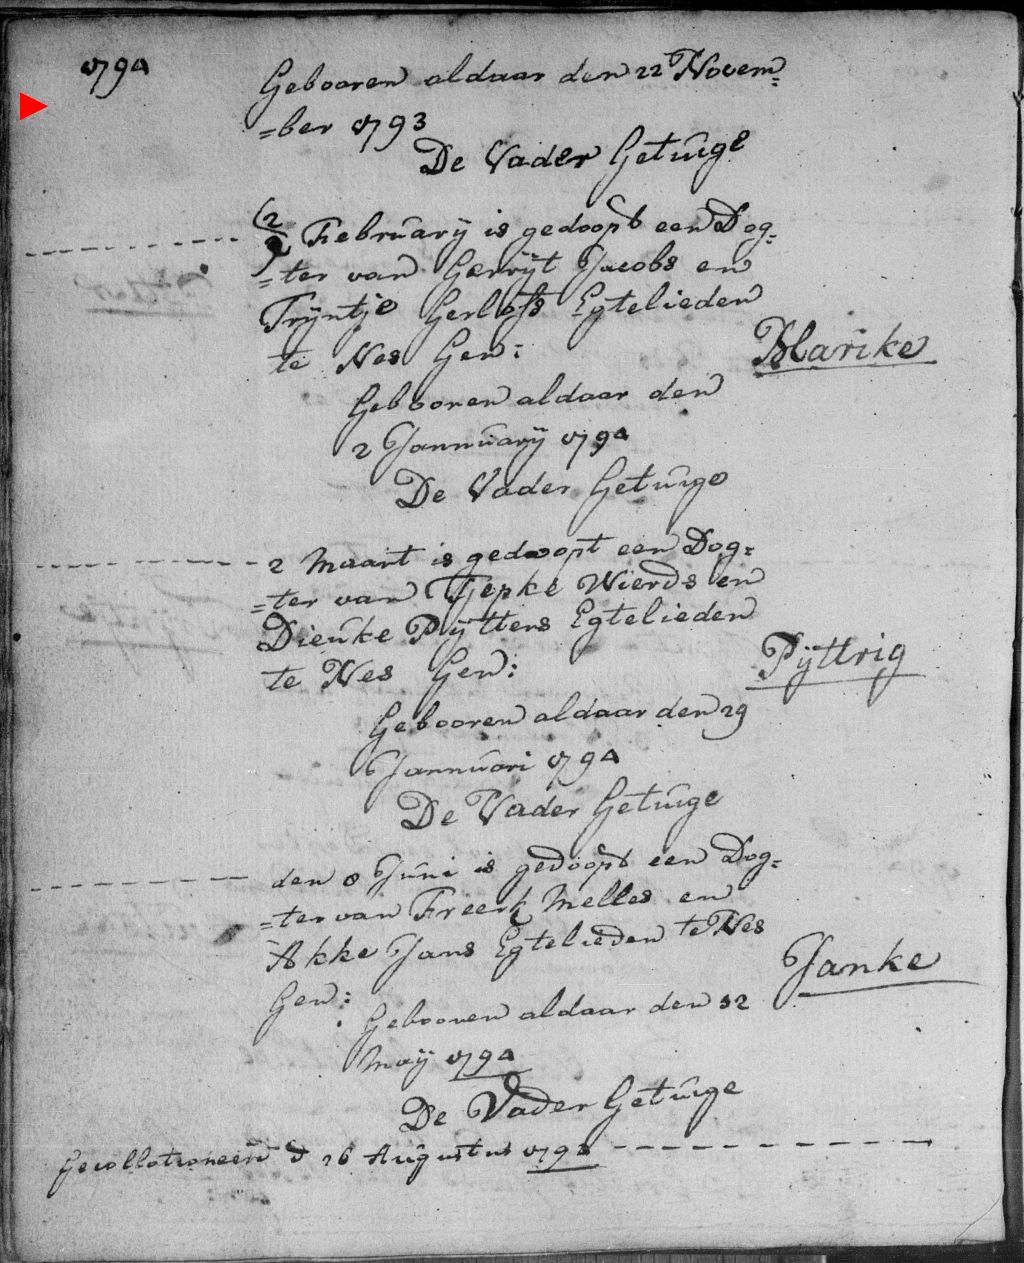 1794
Gebooren aldaar den 22 Novem=
=ber 1793
De Vader Getuige
2 February is gedoopt een Dog=
=ter van Gerryt Jacobs en
Tryntje Gerlofs Egtelieden
te Nes Gen:
Marike
Gebooren aldaar den
2 Jannuary 1794
De Vader Getuige
2 Maart is gedoopt een Dog=
=ter van Tjepke Wierds en
Dieuke Pytters Egtelieden
te Nes Gen:
Pyttrig
Gebooren aldaar den 29
Jannuari 1794
De Vader Getuige
den 8 Juni is gedoopt een Dog=
=ter van Freerk Melles en
Akke Jans Egtelieden te Nes
Gen:
Janke
Gebooren aldaar den
May 1794
De Vader Getuige
Gecollationeert d 26 Augustus